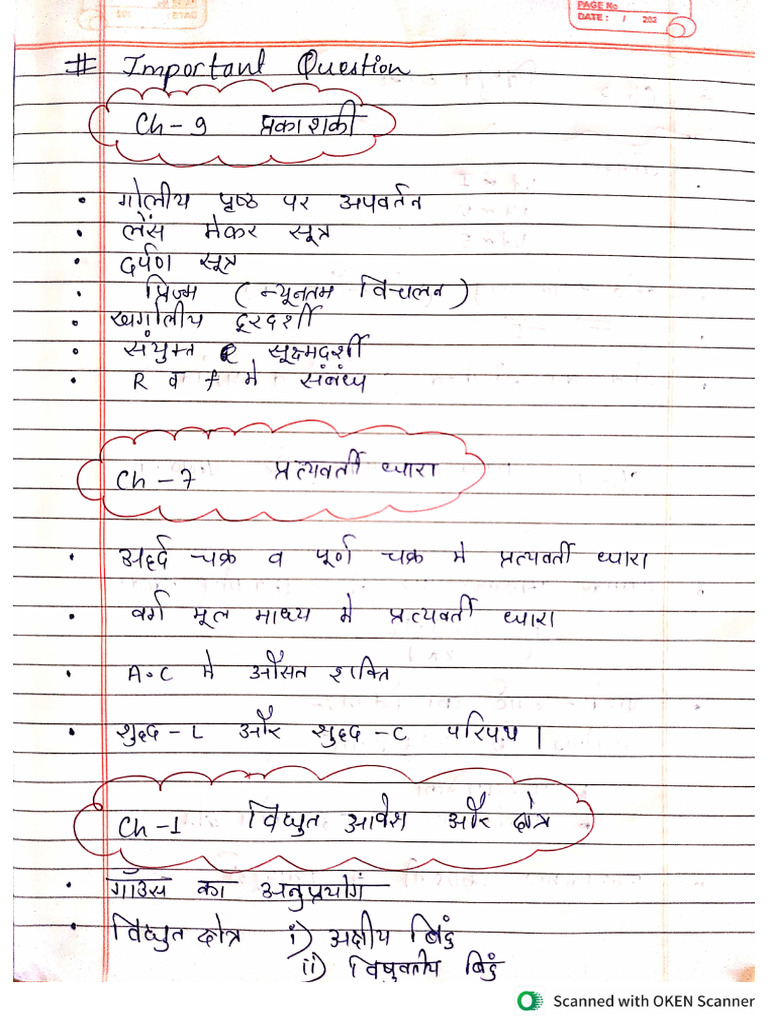 PAGE No
DATE: / 202
# Important Question
Ch - 9 प्रकाशकी
• गोलीय पृष्ठ पर अपवर्तन
• लेंस मेकर सूत्र
• दर्पण सूत्र
• प्रिज्म ( न्यूनतम विचलन )
• खगोलीय दूरदर्शी
• संयुक्त सूक्ष्मदर्शी
• R व f मे संबंध
Ch - 7 प्रत्यवर्ती धारा
• अर्द्ध चक्र व पूर्ण चक्र मे प्रत्यवर्ती धारा
• वर्ग मूल माध्य मे प्रत्यवर्ती धारा
• A.C मे औसत शक्ति
• शुद्द - L और शुद्द - C परिपथ |
Ch - 1 विद्युत आवेश और क्षेत्र
• गाँउस का अनुप्रयोग
• विद्युत क्षेत्र i) अक्षीय बिंदु
ii) विषुवतीय बिंदु
Scanned with OKEN Scanner